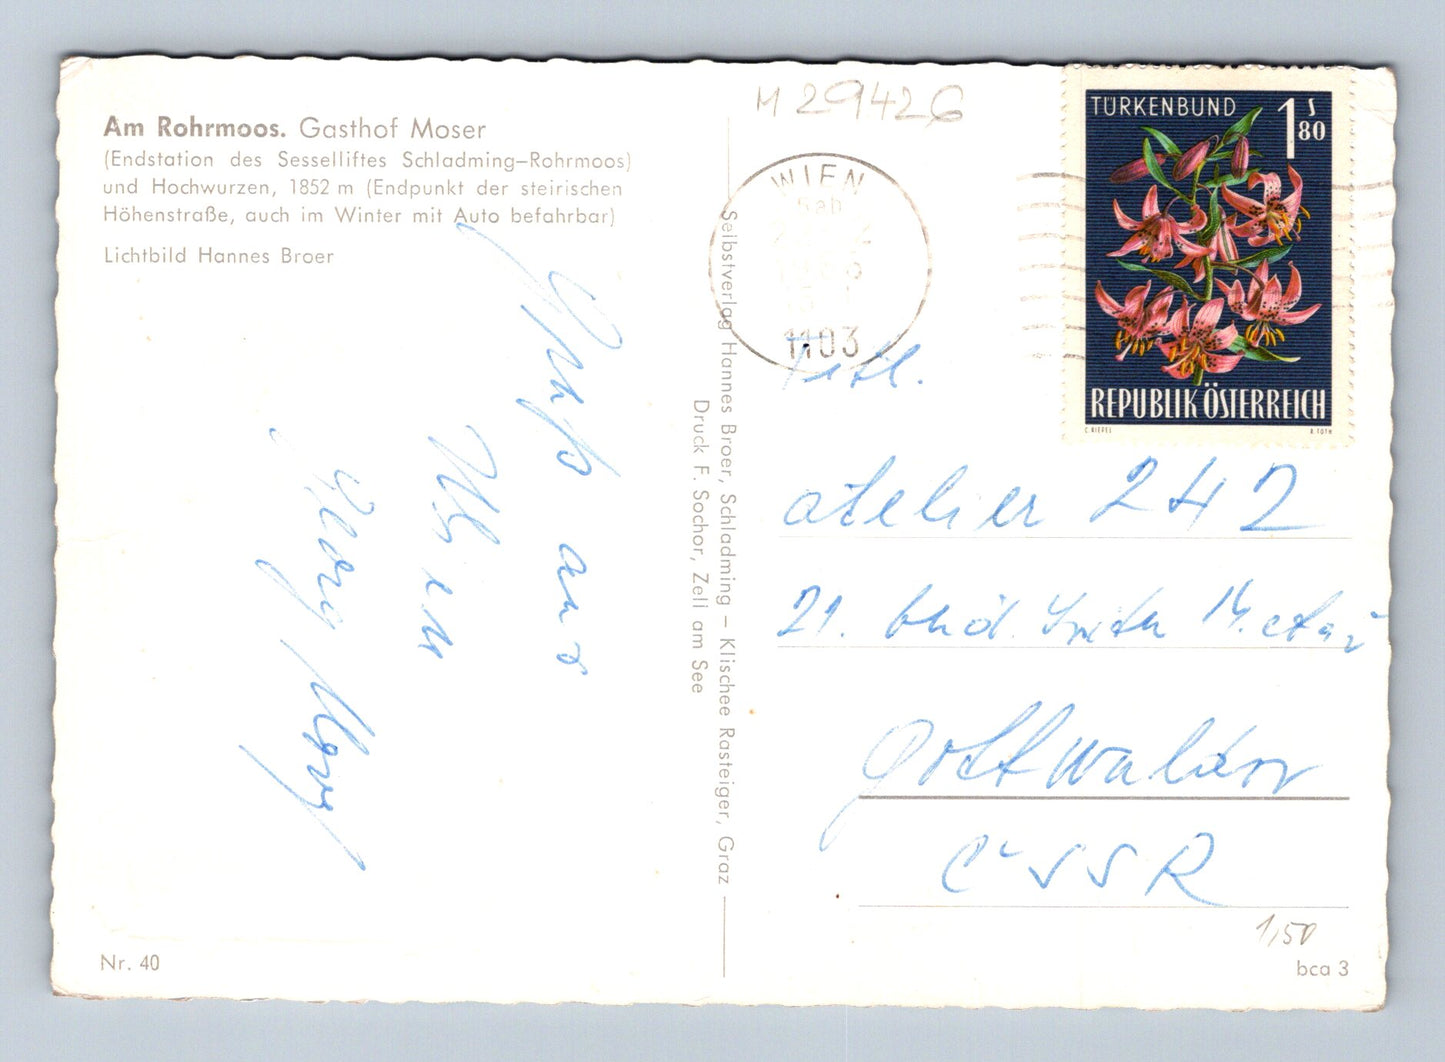 Am Rohrmoos. Gasthof Moser
(Endstation des Sesselliftes Schladming–Rohrmoos)
und Hochwurzen, 1852 m (Endpunkt der steirischen
Höhenstraße, auch im Winter mit Auto befahrbar)
Lichtbild Hannes Broer
Gruß aus
Wien
Georg
Nr. 40
Selbstverlag Hannes Broer, Schladming – Klischee Rasteiger, Graz
Druck F. Sochor, Zell am See
M 29426
WIEN
1103
TÜRKENBUND
1 S 80
REPUBLIK ÖSTERREICH
C. RIEFEL
R. TOTH
Titl.
atelier 242
21.
Gottwaldov
ČSSR
1,50
bca 3